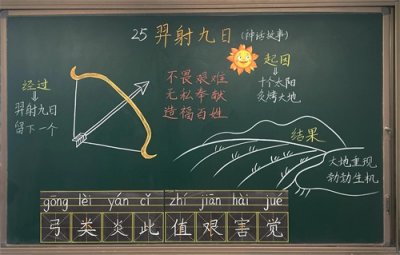 25 羿射九日 (神话故事)
起因
十个太阳
炙烤大地
经过
羿射九日
留下一个
不畏艰难
无私奉献
造福百姓
结果
大地重现
勃勃生机
gōng lèi yán cǐ zhí jiān hài jué
弓类炎此值艰害觉